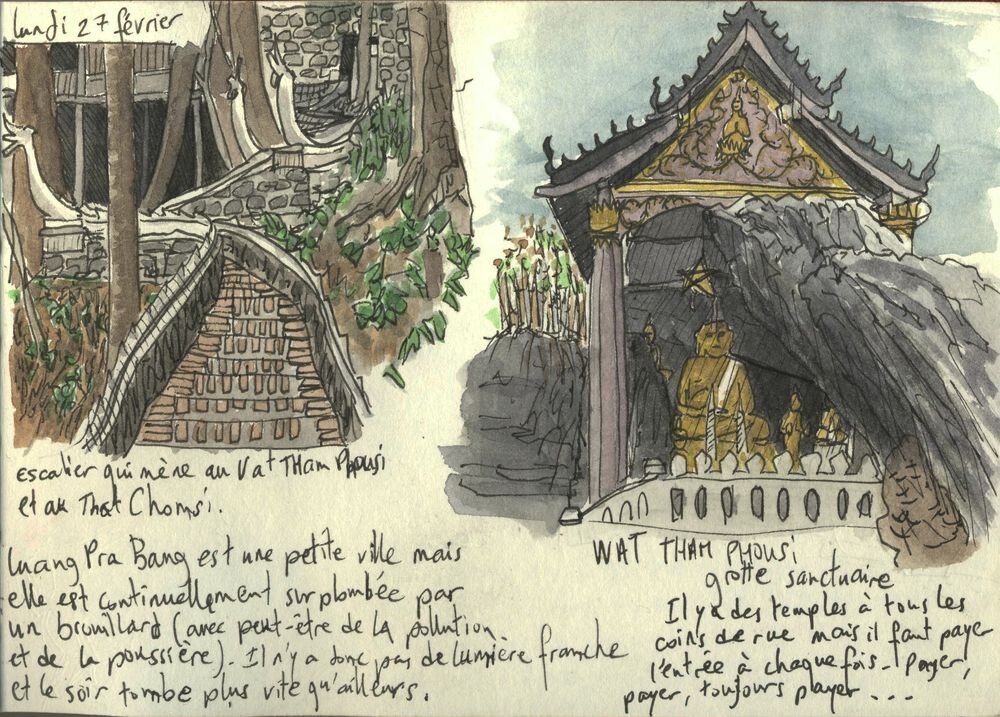 lundi 27 février
escalier qui mène au Vat THam PHousi
et au That Chomsi.
Luang Pra Bang est une petite ville mais
elle est continuellement surplombée par
un brouillard (avec peut-être de la pollution
et de la poussière). Il n'y a donc pas de lumière franche
et le soir tombe plus vite qu'ailleurs.
WAT THAM PHOUSI
grotte sanctuaire
Il y a des temples à tous les
coins de rue mais il faut payer
l'entrée à chaque fois. Payer,
payer, toujours payer...